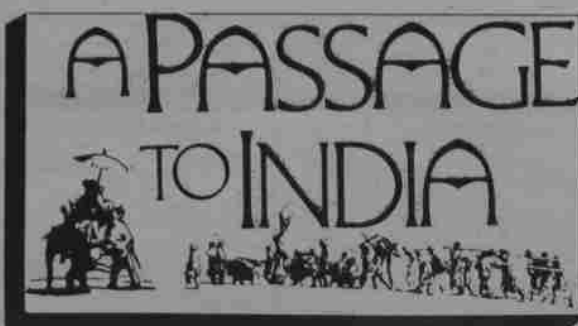 A PASSAGE
TO INDIA